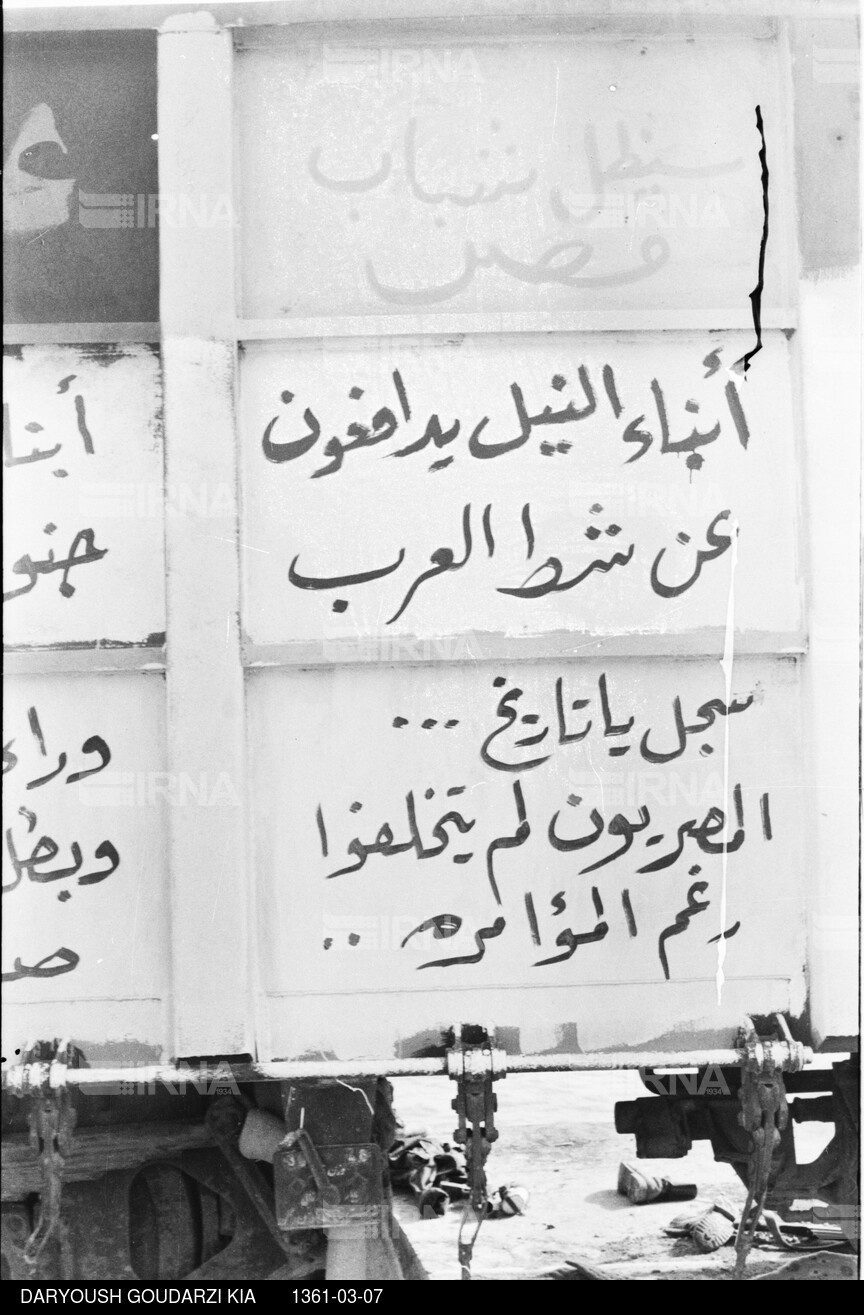 سيظل شباب
أبناء النيل يدافعون
عن شط العرب
سجل ياتاريخ ...
المصريون لم يتخلفوا
رغم المؤامره ..
أبنا
جنو
وراء
وبطل
صد
IRNA
DARYOUSH GOUDARZI KIA 1361-03-07